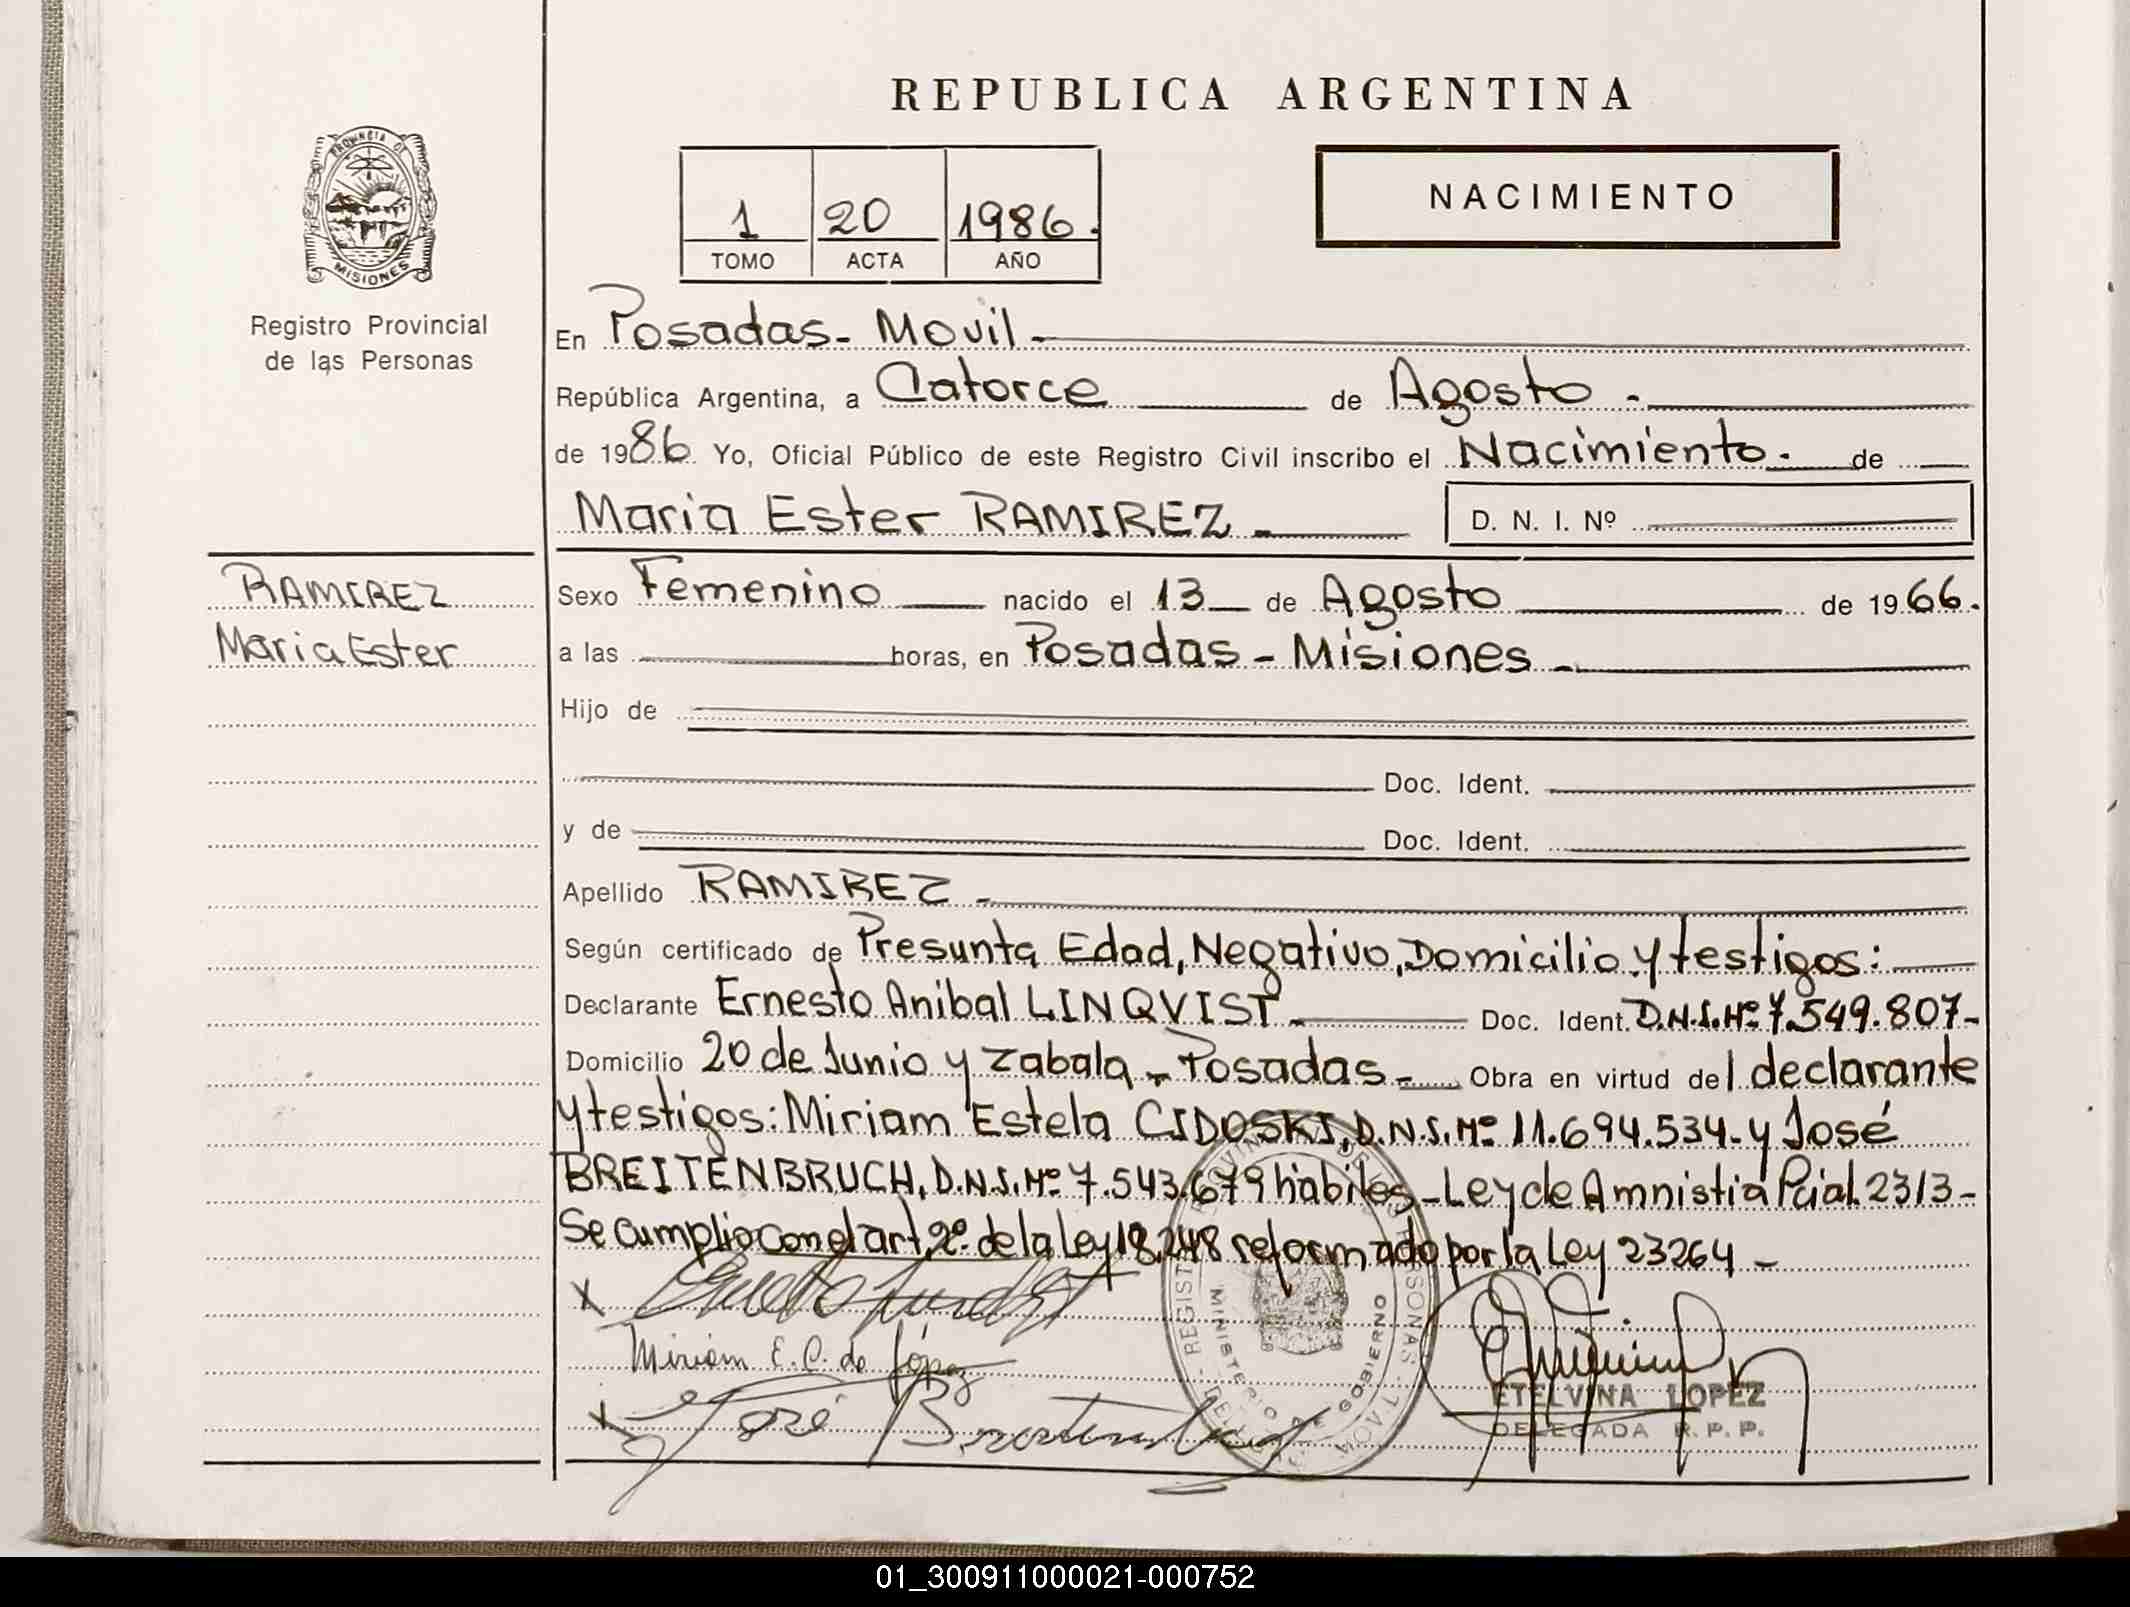 REPUBLICA ARGENTINA
PROVINCIA DE
MISIONES
Registro Provincial
de las Personas
1 20 1986.
TOMO ACTA AÑO
NACIMIENTO
En Posadas - Movil -
República Argentina, a Catorce de Agosto -
de 1986 Yo, Oficial Público de este Registro Civil inscribo el Nacimiento. de
Maria Ester RAMIREZ -
D. N. I. Nº
RAMIREZ
Maria Ester
Sexo Femenino nacido el 13 de Agosto de 1966.
a las horas, en Posadas - Misiones -
Hijo de
Doc. Ident.
y de Doc. Ident.
Apellido RAMIREZ -
Según certificado de Presunta Edad, Negativo, Domicilio y testigos:
Declarante Ernesto Anibal LINQVIST - Doc. Ident. D.N.I. Nº 7.549.807-
Domicilio 20 de Junio y Zabala - Posadas - Obra en virtud del declarante
y testigos: Miriam Estela CIDOSKI, D.N.I. Nº 11.694.534- y José
BREITENBRUCH, D.N.I. Nº 7.543.679 hábiles - Ley de Amnistia Pcial. 2313 -
Se cumplio con el art. 2º de la Ley 18.248 reformado por la Ley 23264 -
Miriam E. C. de López
José
MINISTERIO DE GOBIERNO
ETELVINA LOPEZ
DELEGADA R. P. P.
01_300911000021-000752